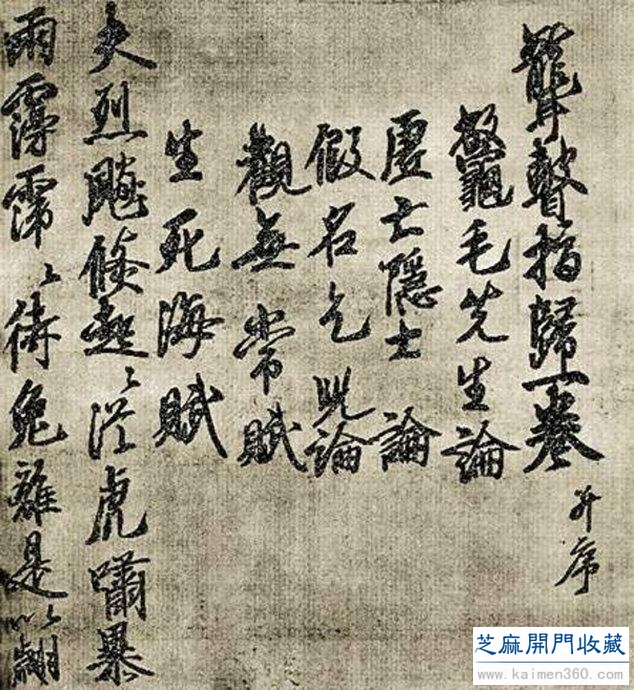 聾瞽指歸一卷 并序
鼈毛先生論
虛亡隱士論
假名乞兒論
觀無常賦
生死海賦
夫烈飈倏起〻從虎嘯暴
雨霶霈〻待兔離是以
芝麻開門收藏
www.kaimen360.com